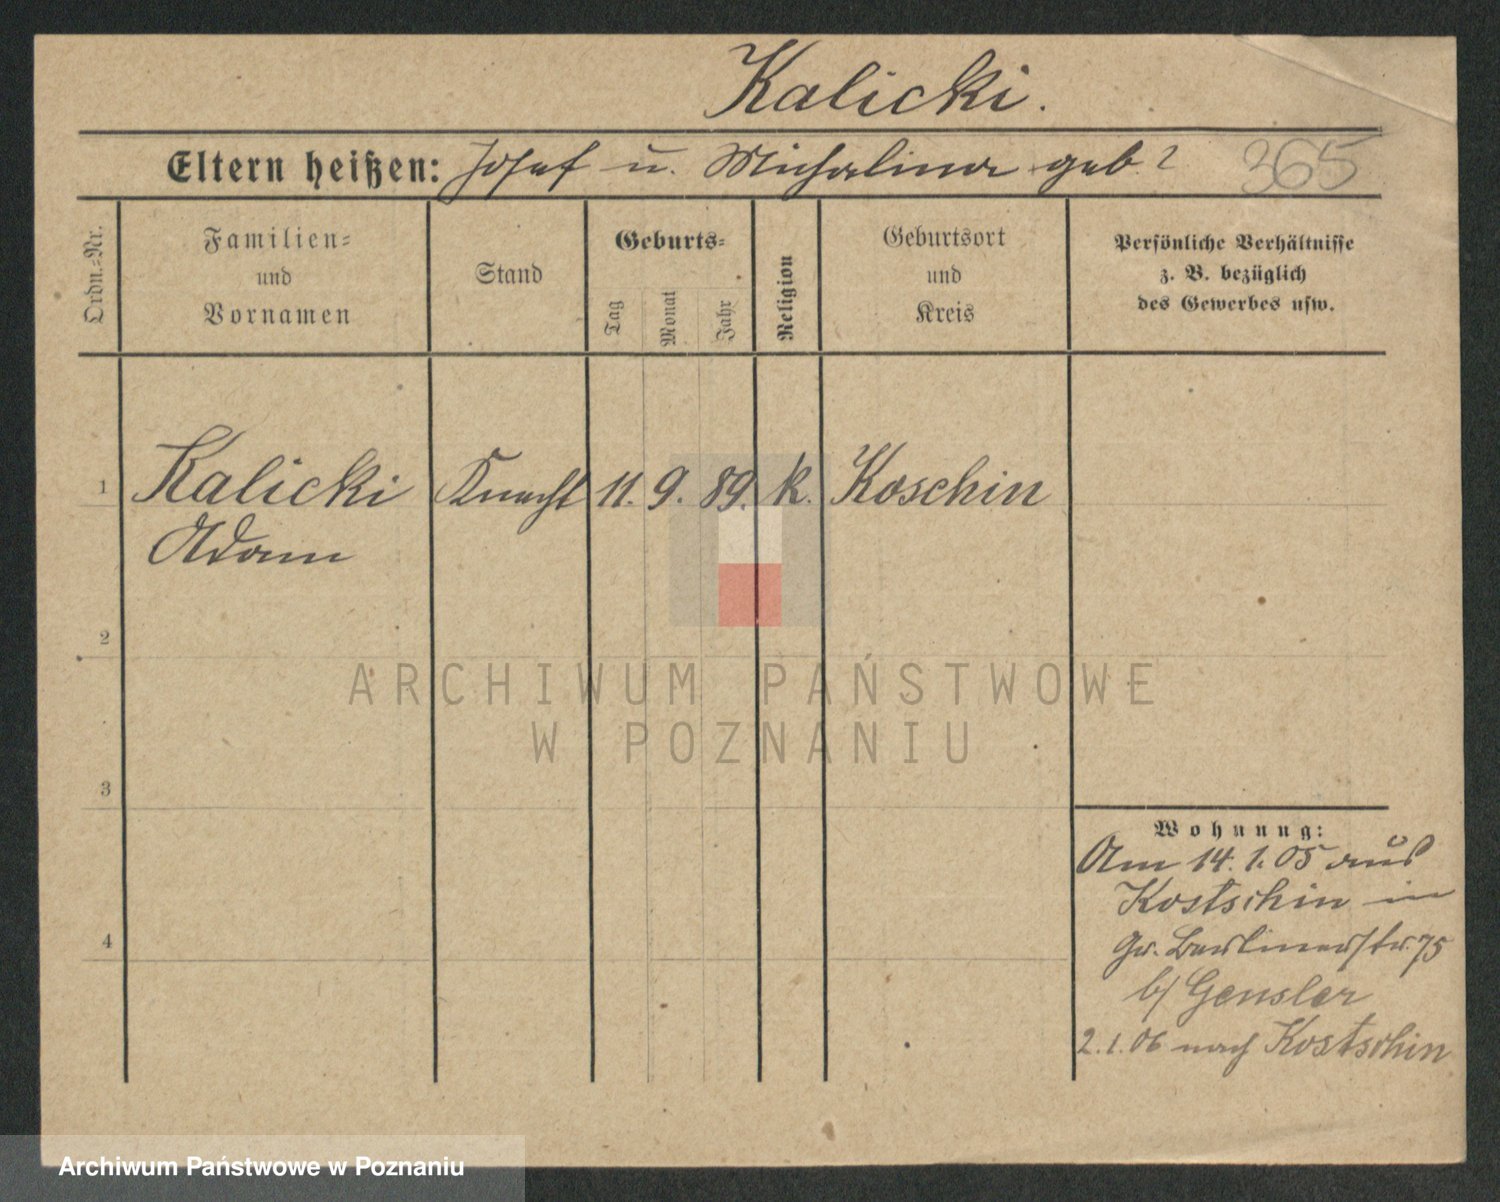 Kalicki.
Eltern heißen: Josef u. Michalina geb. ?
365
Ordn.=Nr.
Familien=
und
Vornamen
Stand
Geburts=
Tag
Monat
Jahr
Religion
Geburtsort
und
Kreis
Persönliche Verhältnisse
z. B. bezüglich
des Gewerbes usw.
1 Kalicki Knecht 11. 9. 89. k. Koschin
Adam
2
3
4
Wohnung:
Am 14.1.05 aus
Kostschin in
Gr. Berlinerstr. 75
b/ Gensler
2.1.06 nach Kostschin
ARCHIWUM PAŃSTWOWE
W POZNANIU
Archiwum Państwowe w Poznaniu